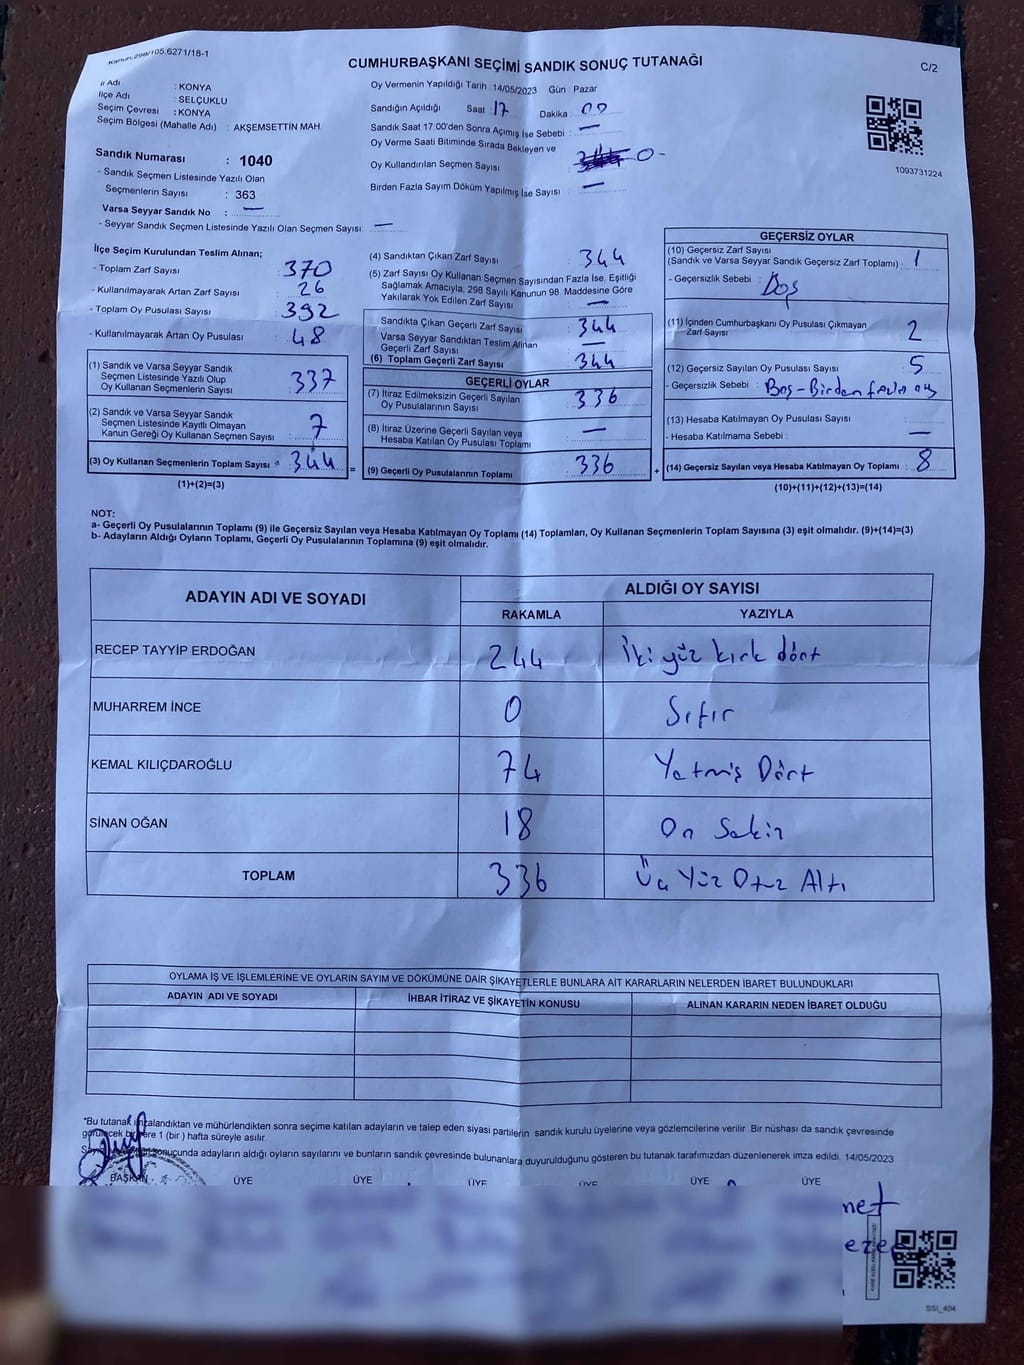 Kanun 298/105,6271/18-1
CUMHURBAŞKANI SEÇİMİ SANDIK SONUÇ TUTANAĞI
C/2
İl Adı : KONYA
İlçe Adı : SELÇUKLU
Seçim Çevresi : KONYA
Seçim Bölgesi (Mahalle Adı) : AKŞEMSETTİN MAH.
Oy Vermenin Yapıldığı Tarih : 14/05/2023 Gün : Pazar
Sandığın Açıldığı Saat 17 Dakika : 00
Sandık Saat 17:00'den Sonra Açımış İse Sebebi : —
Oy Verme Saati Bitiminde Sırada Bekleyen ve
Oy Kullandırılan Seçmen Sayısı : 0-
Birden Fazla Sayım Döküm Yapılmış İse Sayısı : —
1093731224
Sandık Numarası : 1040
- Sandık Seçmen Listesinde Yazılı Olan
Seçmenlerin Sayısı : 363
Varsa Seyyar Sandık No : —
- Seyyar Sandık Seçmen Listesinde Yazılı Olan Seçmen Sayısı: —
İlçe Seçim Kurulundan Teslim Alınan;
- Toplam Zarf Sayısı : 370
- Kullanılmayarak Artan Zarf Sayısı : 26
- Toplam Oy Pusulası Sayısı : 392
- Kullanılmayarak Artan Oy Pusulası : 48
(1) Sandık ve Varsa Seyyar Sandık
Seçmen Listesinde Yazılı Olup
Oy Kullanan Seçmenlerin Sayısı : 337
(2) Sandık ve Varsa Seyyar Sandık
Seçmen Listesinde Kayıtlı Olmayan
Kanun Gereği Oy Kullanan Seçmen Sayısı : 7
(3) Oy Kullanan Seçmenlerin Toplam Sayısı : 344 =
(1)+(2)=(3)
(4) Sandıktan Çıkan Zarf Sayısı : 344
(5) Zarf Sayısı Oy Kullanan Seçmen Sayısından Fazla İse, Eşitliği
Sağlamak Amacıyla, 298 Sayılı Kanunun 98. Maddesine Göre
Yakılarak Yok Edilen Zarf Sayısı : —
Sandıkta Çıkan Geçerli Zarf Sayısı : 344
Varsa Seyyar Sandıktan Teslim Alınan
Geçerli Zarf Sayısı : —
(6) Toplam Geçerli Zarf Sayısı : 344
GEÇERLİ OYLAR
(7) İtiraz Edilmeksizin Geçerli Sayılan
Oy Pusulalarının Sayısı : 336
(8) İtiraz Üzerine Geçerli Sayılan veya
Hesaba Katılan Oy Pusulası Toplamı : —
(9) Geçerli Oy Pusulalarının Toplamı : 336 +
GEÇERSİZ OYLAR
(10) Geçersiz Zarf Sayısı
(Sandık ve Varsa Seyyar Sandık Geçersiz Zarf Toplamı) : 1
- Geçersizlik Sebebi : Boş
(11) İçinden Cumhurbaşkanı Oy Pusulası Çıkmayan
Zarf Sayısı : 2
(12) Geçersiz Sayılan Oy Pusulası Sayısı : 5
- Geçersizlik Sebebi : Boş-Birden fazla oy
(13) Hesaba Katılmayan Oy Pusulası Sayısı : —
- Hesaba Katılmama Sebebi :
(14) Geçersiz Sayılan veya Hesaba Katılmayan Oy Toplamı : 8
(10)+(11)+(12)+(13)=(14)
NOT:
a- Geçerli Oy Pusulalarının Toplamı (9) ile Geçersiz Sayılan veya Hesaba Katılmayan Oy Toplamı (14) Toplamları, Oy Kullanan Seçmenlerin Toplam Sayısına (3) eşit olmalıdır. (9)+(14)=(3)
b- Adayların Aldığı Oyların Toplamı, Geçerli Oy Pusulalarının Toplamına (9) eşit olmalıdır.
ADAYIN ADI VE SOYADI ALDIĞI OY SAYISI
RAKAMLA YAZIYLA
RECEP TAYYİP ERDOĞAN 244 İki yüz kırk dört
MUHARREM İNCE 0 Sıfır
KEMAL KILIÇDAROĞLU 74 Yetmiş Dört
SİNAN OĞAN 18 On Sekiz
TOPLAM 336 Üç Yüz Otuz Altı
OYLAMA İŞ VE İŞLEMLERİNE VE OYLARIN SAYIM VE DÖKÜMÜNE DAİR ŞİKAYETLERLE BUNLARA AİT KARARLARIN NELERDEN İBARET BULUNDUKLARI
ADAYIN ADI VE SOYADI İHBAR İTİRAZ VE ŞİKAYETİN KONUSU ALINAN KARARIN NEDEN İBARET OLDUĞU
*Bu tutanak imzalandıktan ve mühürlendikten sonra seçime katılan adayların ve talep eden siyasi partilerin sandık kurulu üyelerine veya gözlemcilerine verilir. Bir nüshası da sandık çevresinde
görülecek bir yere 1 (bir ) hafta süreyle asılır.
sonuçunda adayların aldığı oyların sayılarını ve bunların sandık çevresinde bulunanlara duyurulduğunu gösteren bu tutanak tarafımızdan düzenlenerek imza edildi. 14/05/2023
BAŞKAN ÜYE ÜYE ÜYE ÜYE ÜYE ÜYE
SSI_404